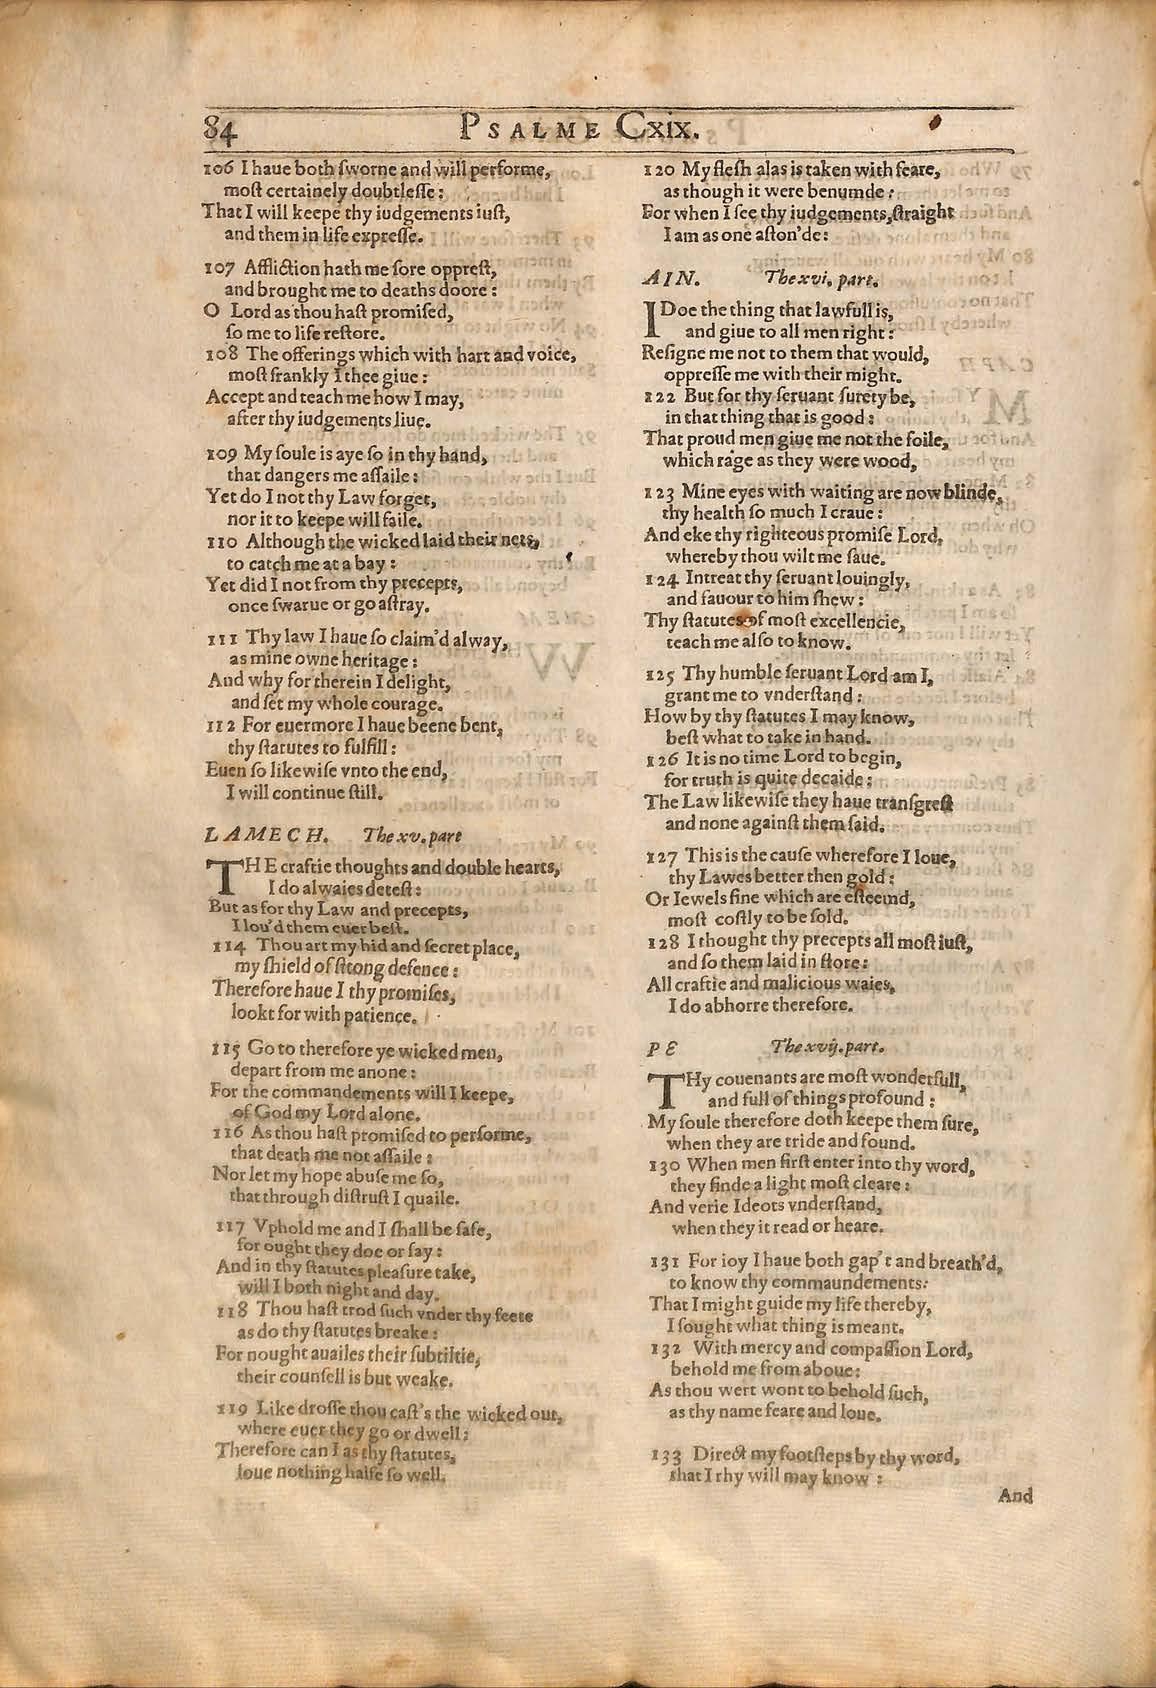 84
PSALME Cxix.
106 I haue both ſworne and will performe,
moſt certainely doubtleſſe:
That I will keepe thy iudgements iuſt,
and them in life expreſſe.
107 Affliction hath me ſore oppreſt,
and brought me to deaths doore:
O Lord as thou haſt promiſed,
ſo me to life reſtore.
108 The offerings which with hart and voice,
moſt frankly I thee giue:
Accept and teach me how I may,
after thy iudgements liue.
109 My ſoule is aye ſo in thy hand,
that dangers me aſſaile:
Yet do I not thy Law forget,
nor it to keepe will faile.
110 Although the wicked laid their nets,
to catch me at a bay:
Yet did I not from thy precepts,
once ſwarue or go aſtray.
111 Thy law I haue ſo claim'd alway,
as mine owne heritage:
And why for therein I delight,
and ſet my whole courage.
112 For euermore I haue beene bent,
thy ſtatutes to fulfill:
Euen ſo likewiſe vnto the end,
I will continue ſtill.
LAMECH. The xv. part
THE craftie thoughts and double hearts,
I do alwaies deteſt:
But as for thy Law and precepts,
I lou'd them euer beſt.
114 Thou art my hid and ſecret place,
my ſhield of ſtrong defence:
Therefore haue I thy promiſes,
lookt for with patience.
115 Go to therefore ye wicked men,
depart from me anone:
For the commandements will I keepe,
of God my Lord alone.
116 As thou haſt promiſed to performe,
that death me not aſſaile:
Nor let my hope abuſe me ſo,
that through diſtruſt I quaile.
117 Vphold me and I ſhall be ſafe,
for ought they doe or ſay:
And in thy ſtatutes pleaſure take,
will I both night and day.
118 Thou haſt trod ſuch vnder thy feete
as do thy ſtatutes breake:
For nought auailes their ſubtiltie,
their counſell is but weake.
119 Like droſſe thou caſt's the wicked out,
where euer they go or dwell:
Therefore can I as thy ſtatutes,
loue nothing halfe ſo well.
120 My fleſh alas is taken with feare,
as though it were benumde:
For when I ſee thy iudgements, ſtraight
I am as one aſton'de:
AIN. The xvi. part.
I Doe the thing that lawfull is,
and giue to all men right:
Reſigne me not to them that would,
oppreſſe me with their might.
122 But for thy ſeruant ſurety be,
in that thing that is good:
That proud men giue me not the foile,
which rage as they were wood,
123 Mine eyes with waiting are now blinde,
thy health ſo much I craue:
And eke thy righteous promiſe Lord,
whereby thou wilt me ſaue.
124 Intreat thy ſeruant louingly,
and fauour to him ſhew:
Thy ſtatutes of moſt excellencie,
teach me alſo to know.
125 Thy humble ſeruant Lord am I,
grant me to vnderſtand:
How by thy ſtatutes I may know,
beſt what to take in hand.
126 It is no time Lord to begin,
for truth is quite decaide:
The Law likewiſe they haue tranſgreſt
and none againſt them ſaid.
127 This is the cauſe wherefore I loue,
thy Lawes better then gold:
Or Iewels fine which are eſteemd,
moſt coſtly to be ſold.
128 I thought thy precepts all moſt iuſt,
and ſo them laid in ſtore:
All craftie and malicious waies,
I do abhorre therefore.
PE The xvij. part.
THy couenants are moſt wonderfull,
and full of things profound:
My ſoule therefore doth keepe them ſure,
when they are tride and found.
130 When men firſt enter into thy word,
they finde a light moſt cleare:
And verie Ideots vnderſtand,
when they it read or heare.
131 For ioy I haue both gap't and breath'd,
to know thy commaundements:
That I might guide my life thereby,
I ſought what thing is meant.
132 With mercy and compaſſion Lord,
behold me from aboue:
As thou wert wont to behold ſuch,
as thy name feare and loue.
133 Direct my footſteps by thy word,
that I thy will may know:
And